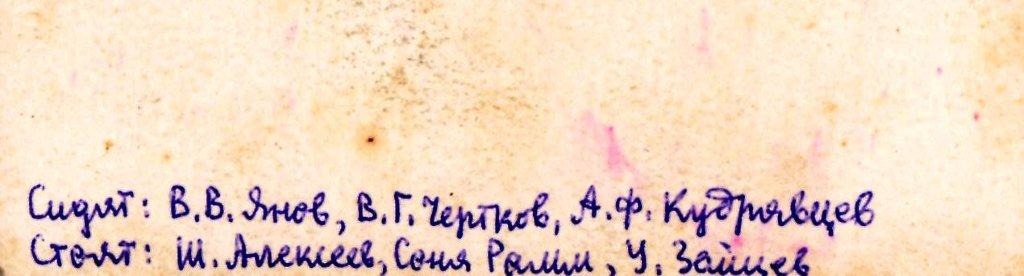 Сидят: В.В. Янов, В.Г. Чертков, А.Ф. Кудрявцев
Стоят: Ш. Алексеев, Соня Рамм, У. Зайцев